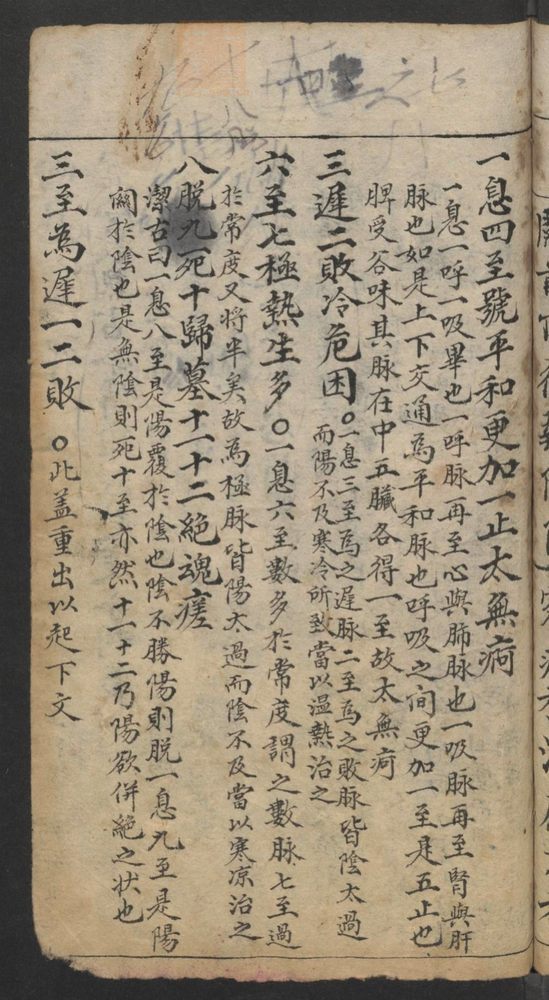 一息四至號平和更加一止太無疴
一息一呼一吸畢也一呼脉再至心與肺脉也一吸脉再至腎與肝
脉也如是上下交通為平和脉也呼吸之間更加一至是五止也
脾受谷味其脉在中五臟各得一至故太無疴
三遲二敗冷危困。一息三至為之遲脉二至為之敗脉皆陰太過
而陽不及寒冷所致當以温熱治之
六至七極熱生多〇一息六至數多於常度謂之數脉七至過
於常度又將半矣故為極脉皆陽太過而陰不及當以寒凉治之
八脫九死十歸墓十一十二絶魂瘥
潔古曰一息八至是陽覆於陰也陰不勝陽則脫一息九至是陽
闕於陰也是無陰則死十至亦然十一十二乃陽欲併絶之状也
三至為遲一二敗 〇此盖重出以起下文